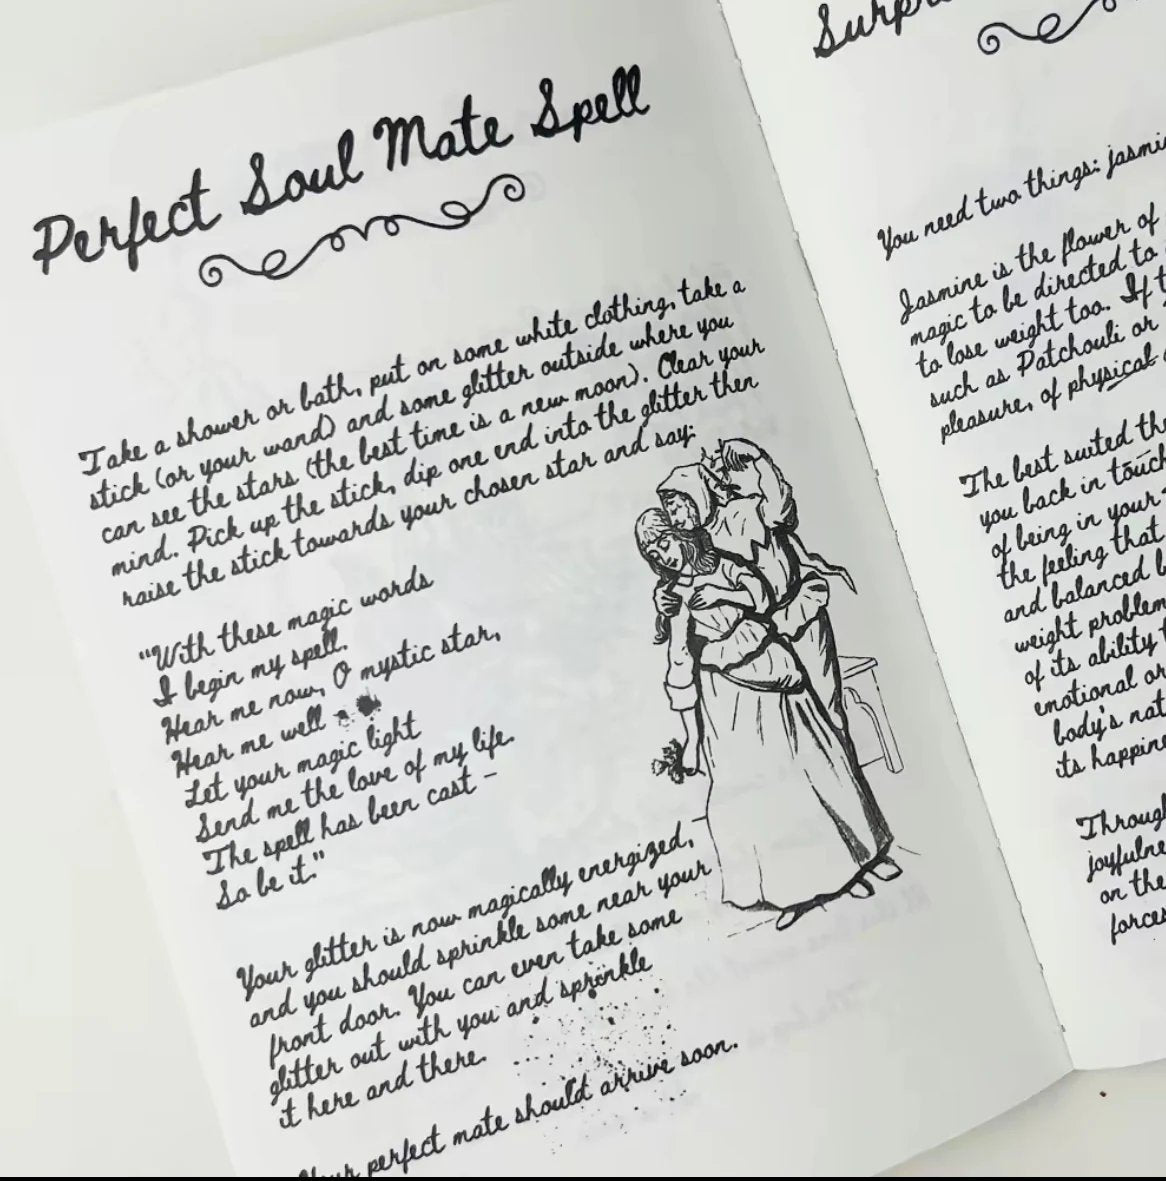 Perfect Soul Mate Spell
Take a shower or bath, put on some white clothing, take a
stick (or your wand) and some glitter outside where you
can see the stars (the best time is a new moon). Clear your
mind. Pick up the stick, dip one end into the glitter then
raise the stick towards your chosen star and say:
"With these magic words
I begin my spell.
Hear me now, O mystic star,
Hear me well -
Let your magic light
Send me the love of my life.
The spell has been cast -
So be it."
Your glitter is now magically energized,
and you should sprinkle some near your
front door. You can even take some
glitter out with you and sprinkle
it here and there.
Your perfect mate should arrive soon.
You need two things:
Jasmine is the flower of
magic to be directed to
to lose weight too. If
such as Patchouli or
pleasure, of physical
The best suited
you back in touch
of being in your
the feeling that
and balanced
weight
of its ability
emotional or
body's
its
on the